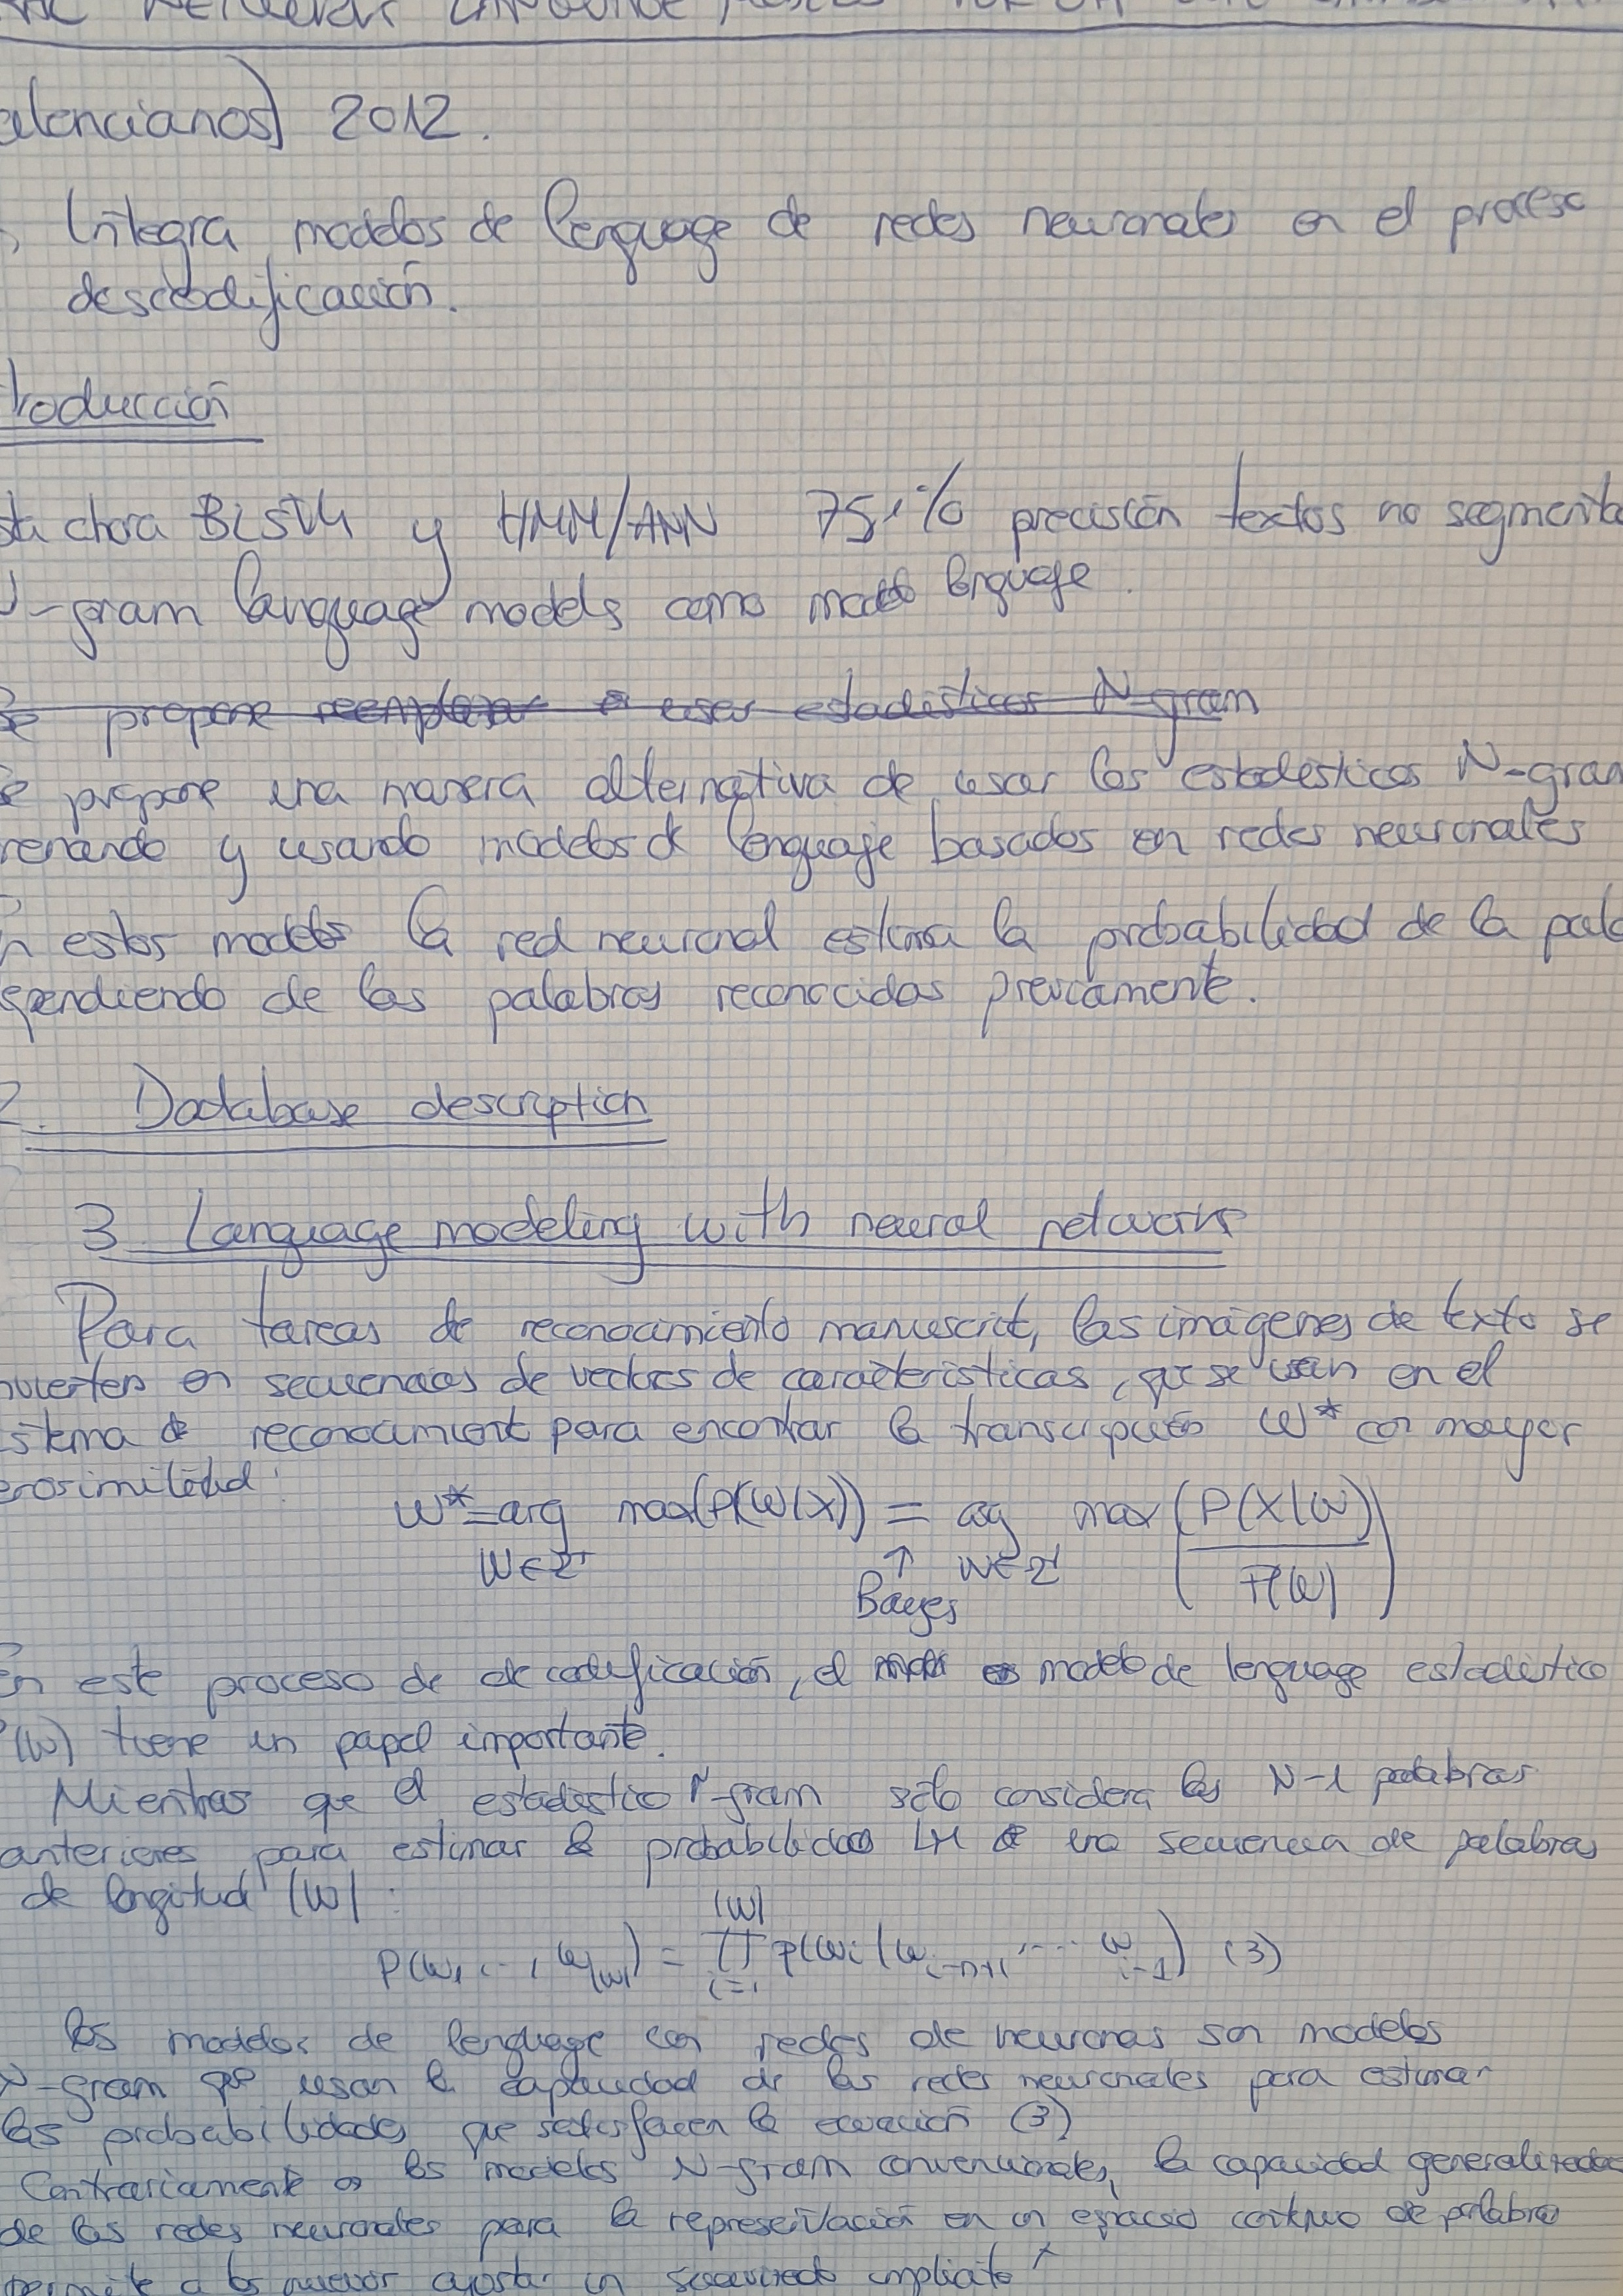 alencianos) 2012.
Integra modelos de lenguage de redes neuronales en el proceso
descodificación.
troducción
sta ahora BLSTM y HMM/ANN 75,1% precisión textos no segmenta
N-gram language models como modelo lenguaje.
Se propone reemplazar o usar estadísticos N-gram
Se propone una manera alternativa de usar los estadísticos N-gram
renando y usando modelos de lenguaje basados en redes neuronales
En estos modelos la red neuronal estima la probabilidad de la pala
ependiendo de las palabras reconocidas previamente.
2. Database description
3 Language modeling with neural networks
Para tareas de reconocimiento manuscrito, las imágenes de texto se
nvierten en secuencias de vectores de características, que se usan en el
stema de reconocimiento para encontrar la transcripción W* con mayor
erosimilitud:
W* = arg max(P(W|X)) = arg max (P(X|W)
W∈Σ ↑ W∈Σ P(W))
Bayes
En este proceso de decodificación, el modelo de lenguage estadístico
P(W) tiene un papel importante.
Mientras que el estadístico N-gram sólo considera las N-1 palabras
anteriores para estimar la probabilidad LM de una secuencia de palabras
de longitud |W| :
|W|
P(w1, .., w|W|) = ∏ p(wi | wi-n+1, .... wi-1) (3)
i=1
los modelos de lenguage con redes de neuronas son modelos
N-gram que usan la capacidad de las redes neuronales para estimar
las probabilidades que satisfacen la ecuación (3)
Contrariamente a los modelos N-gram convencionales, la capacidad generalizadora
de las redes neuronales para la representación en un espacio continuo de palabra
permite a los nuevos ajustar un suavizado implícito